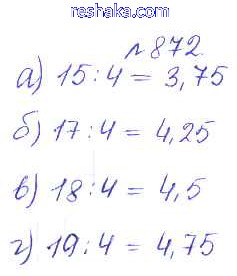 reshaka.com
№872
а) 15:4 = 3,75
б) 17:4 = 4,25
в) 18:4 = 4,5
г) 19:4 = 4,75